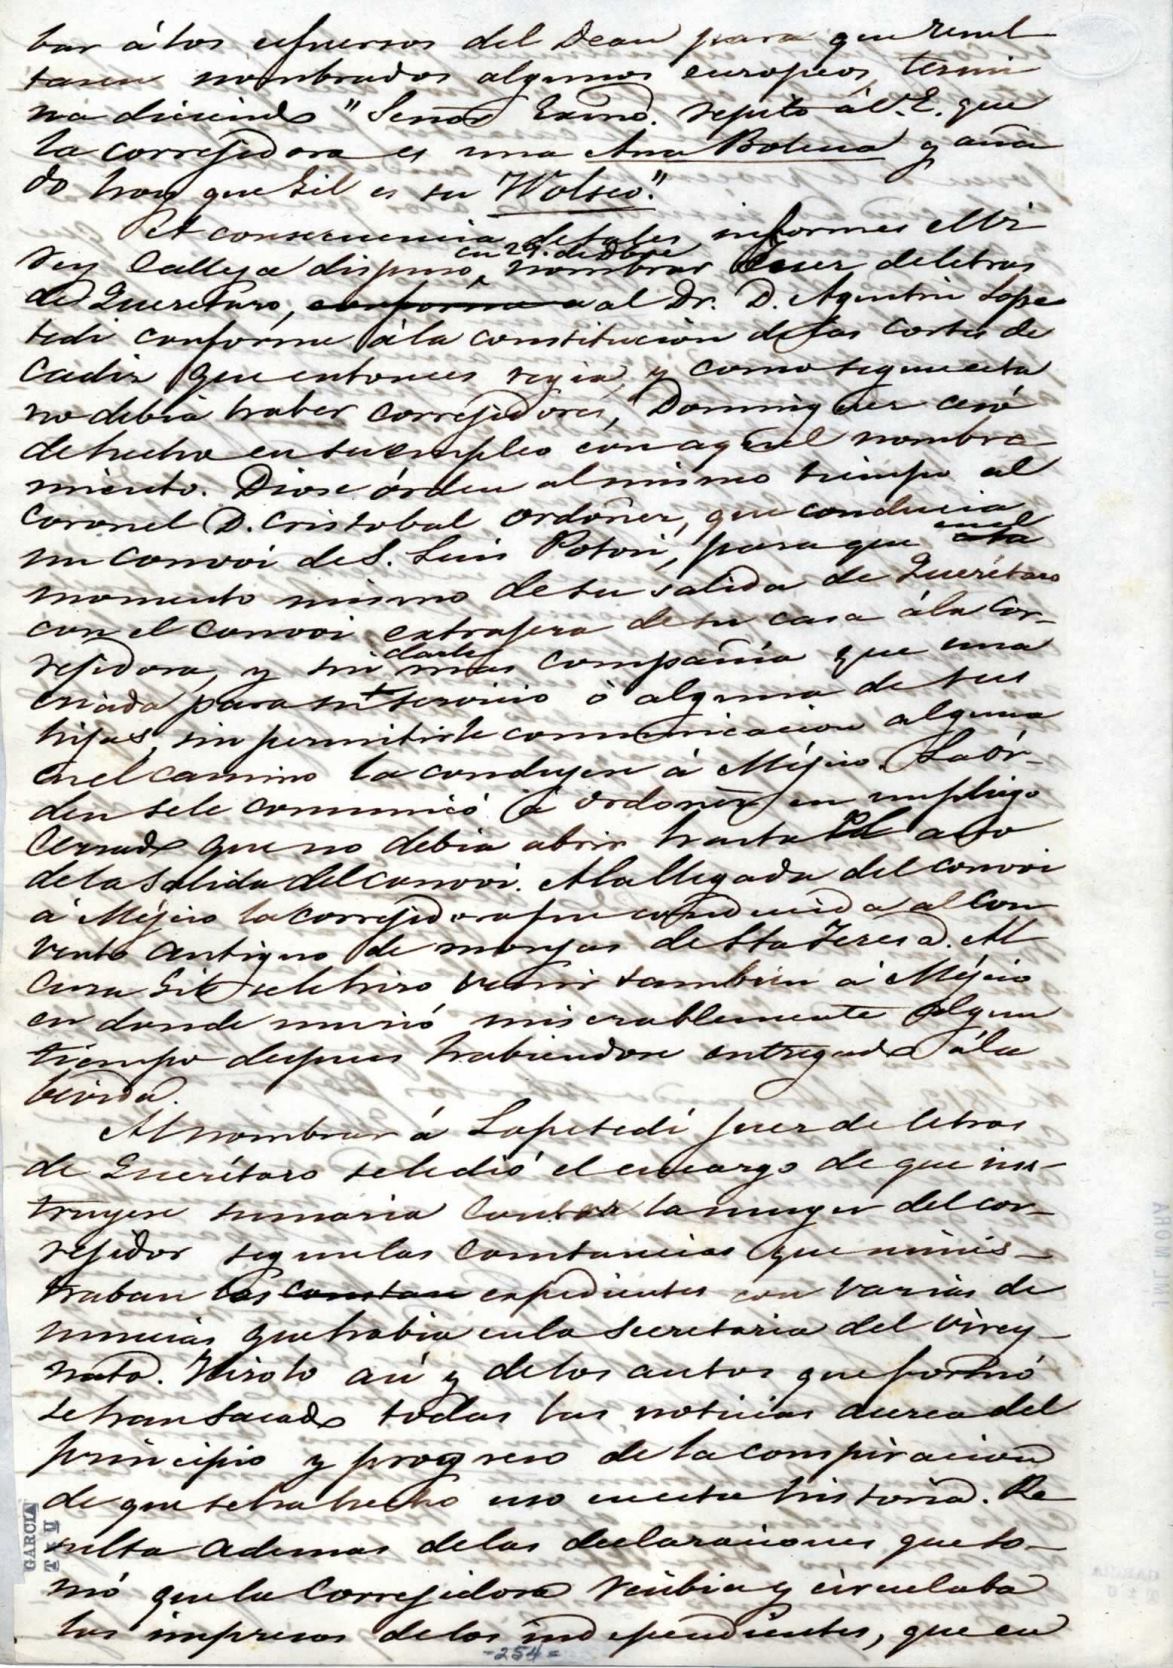 bar á los esfuersos del Dean para que resul
tasen nombrados algunos europeos, termi
na diciendo "Señor Exmô. repito á V. E. que
la corregidora es una Ana Bolena y aña
do hoy que Gil es su Wolseo."
A consecuencia de tales informes el Vi
rey Calleja dispuso, en 29 de Dbre nombrar Juez de letras
de Querétaro, conforme a al Dr. D. Agustin Lope
tedi conforme á la constitucion de las Cortes de
Cadiz que entonces regia, y como segun esta
no debia haber corregidores, Dominguez cesó
de hecho en su empleo con aquel nombra
miento. Diose órden al mismo tiempo al
coronel D. Cristobal Ordoñez, que conducia
un convoi de S. Luis Potosi, para que en el
momento mismo de su salida de Querétaro
con el convoi, extrajera de su casa á la Cor-
regidora, y sin darle mas compañia que una
criada para su servicio ó alguna de sus
hijas, sin permitirle comunicacion alguna
en el camino la condujese á Méjico. La ór-
den se le comunicó á Ordoñez en un pliego
cerrado que no debia abrir hasta el acto
de la salida del convoi. A la llegada del convoi
á Méjico la corregidora fue conducida al Con
vento antiguo de monjas de Sta Teresa. Al
cura Gil se le hizo venir tambien á Méjico
en donde murió miserablemente algun
tiempo despues habiendose entregado á la
bebida.
Al nombrar á Lopetedi juez de letras
de Querétaro se le dió el encargo de que ins-
truyese sumaria contra la muger del cor-
regidor segun las constancias que minis-
traban los constan expedientes con varias de
nuncias que habia en la Secretaria del virey-
nato. Hizolo asi y de los autos que formó
se han sacado todas las noticias acerca del
principio y progreso de la conspiracion
de que se ha hecho uso en esta historia. Re
sulta ademas de las declaraciones que to-
mó que la Corregidora recibia y circulaba
los impresos de los independientes, que en
-254-
GARCIA